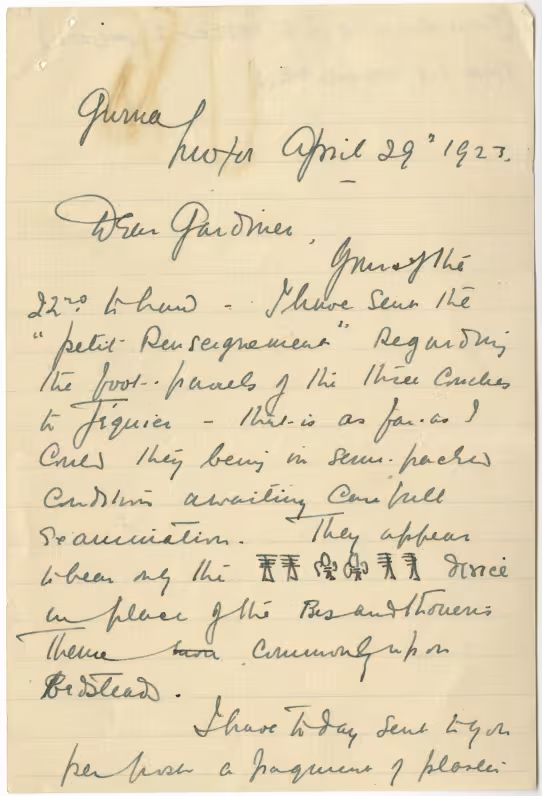 Gurna
Luxor April 29" 1923.
Dear Gardiner,
Yours of the
22nd to hand - I have sent the
"petit Renseignement" Regarding
the foot-panels of the three Couches
to Jéquier - that-is as far-as I
Could they being in semi-packed
Condition awaiting Carefull
Examination. They appear
to bear only the 𓊽𓊽 𓎬𓎬 𓊽𓊽 device
in place of the Bes and Thoueris
Theme commonly upon
Bedsteads.
I have to day sent to you
per post a fragment of plaster